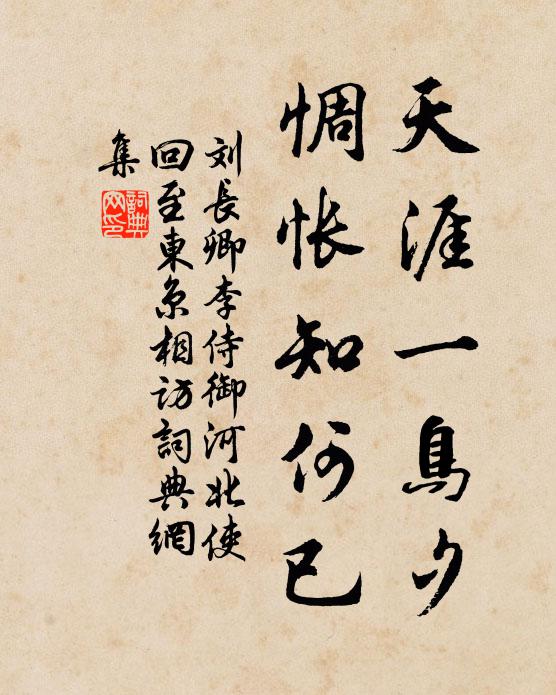 天涯一鳥夕
惆怅知何已
刘長卿李侍御河北使
回至東京相访詞典網
集
詞典
网印